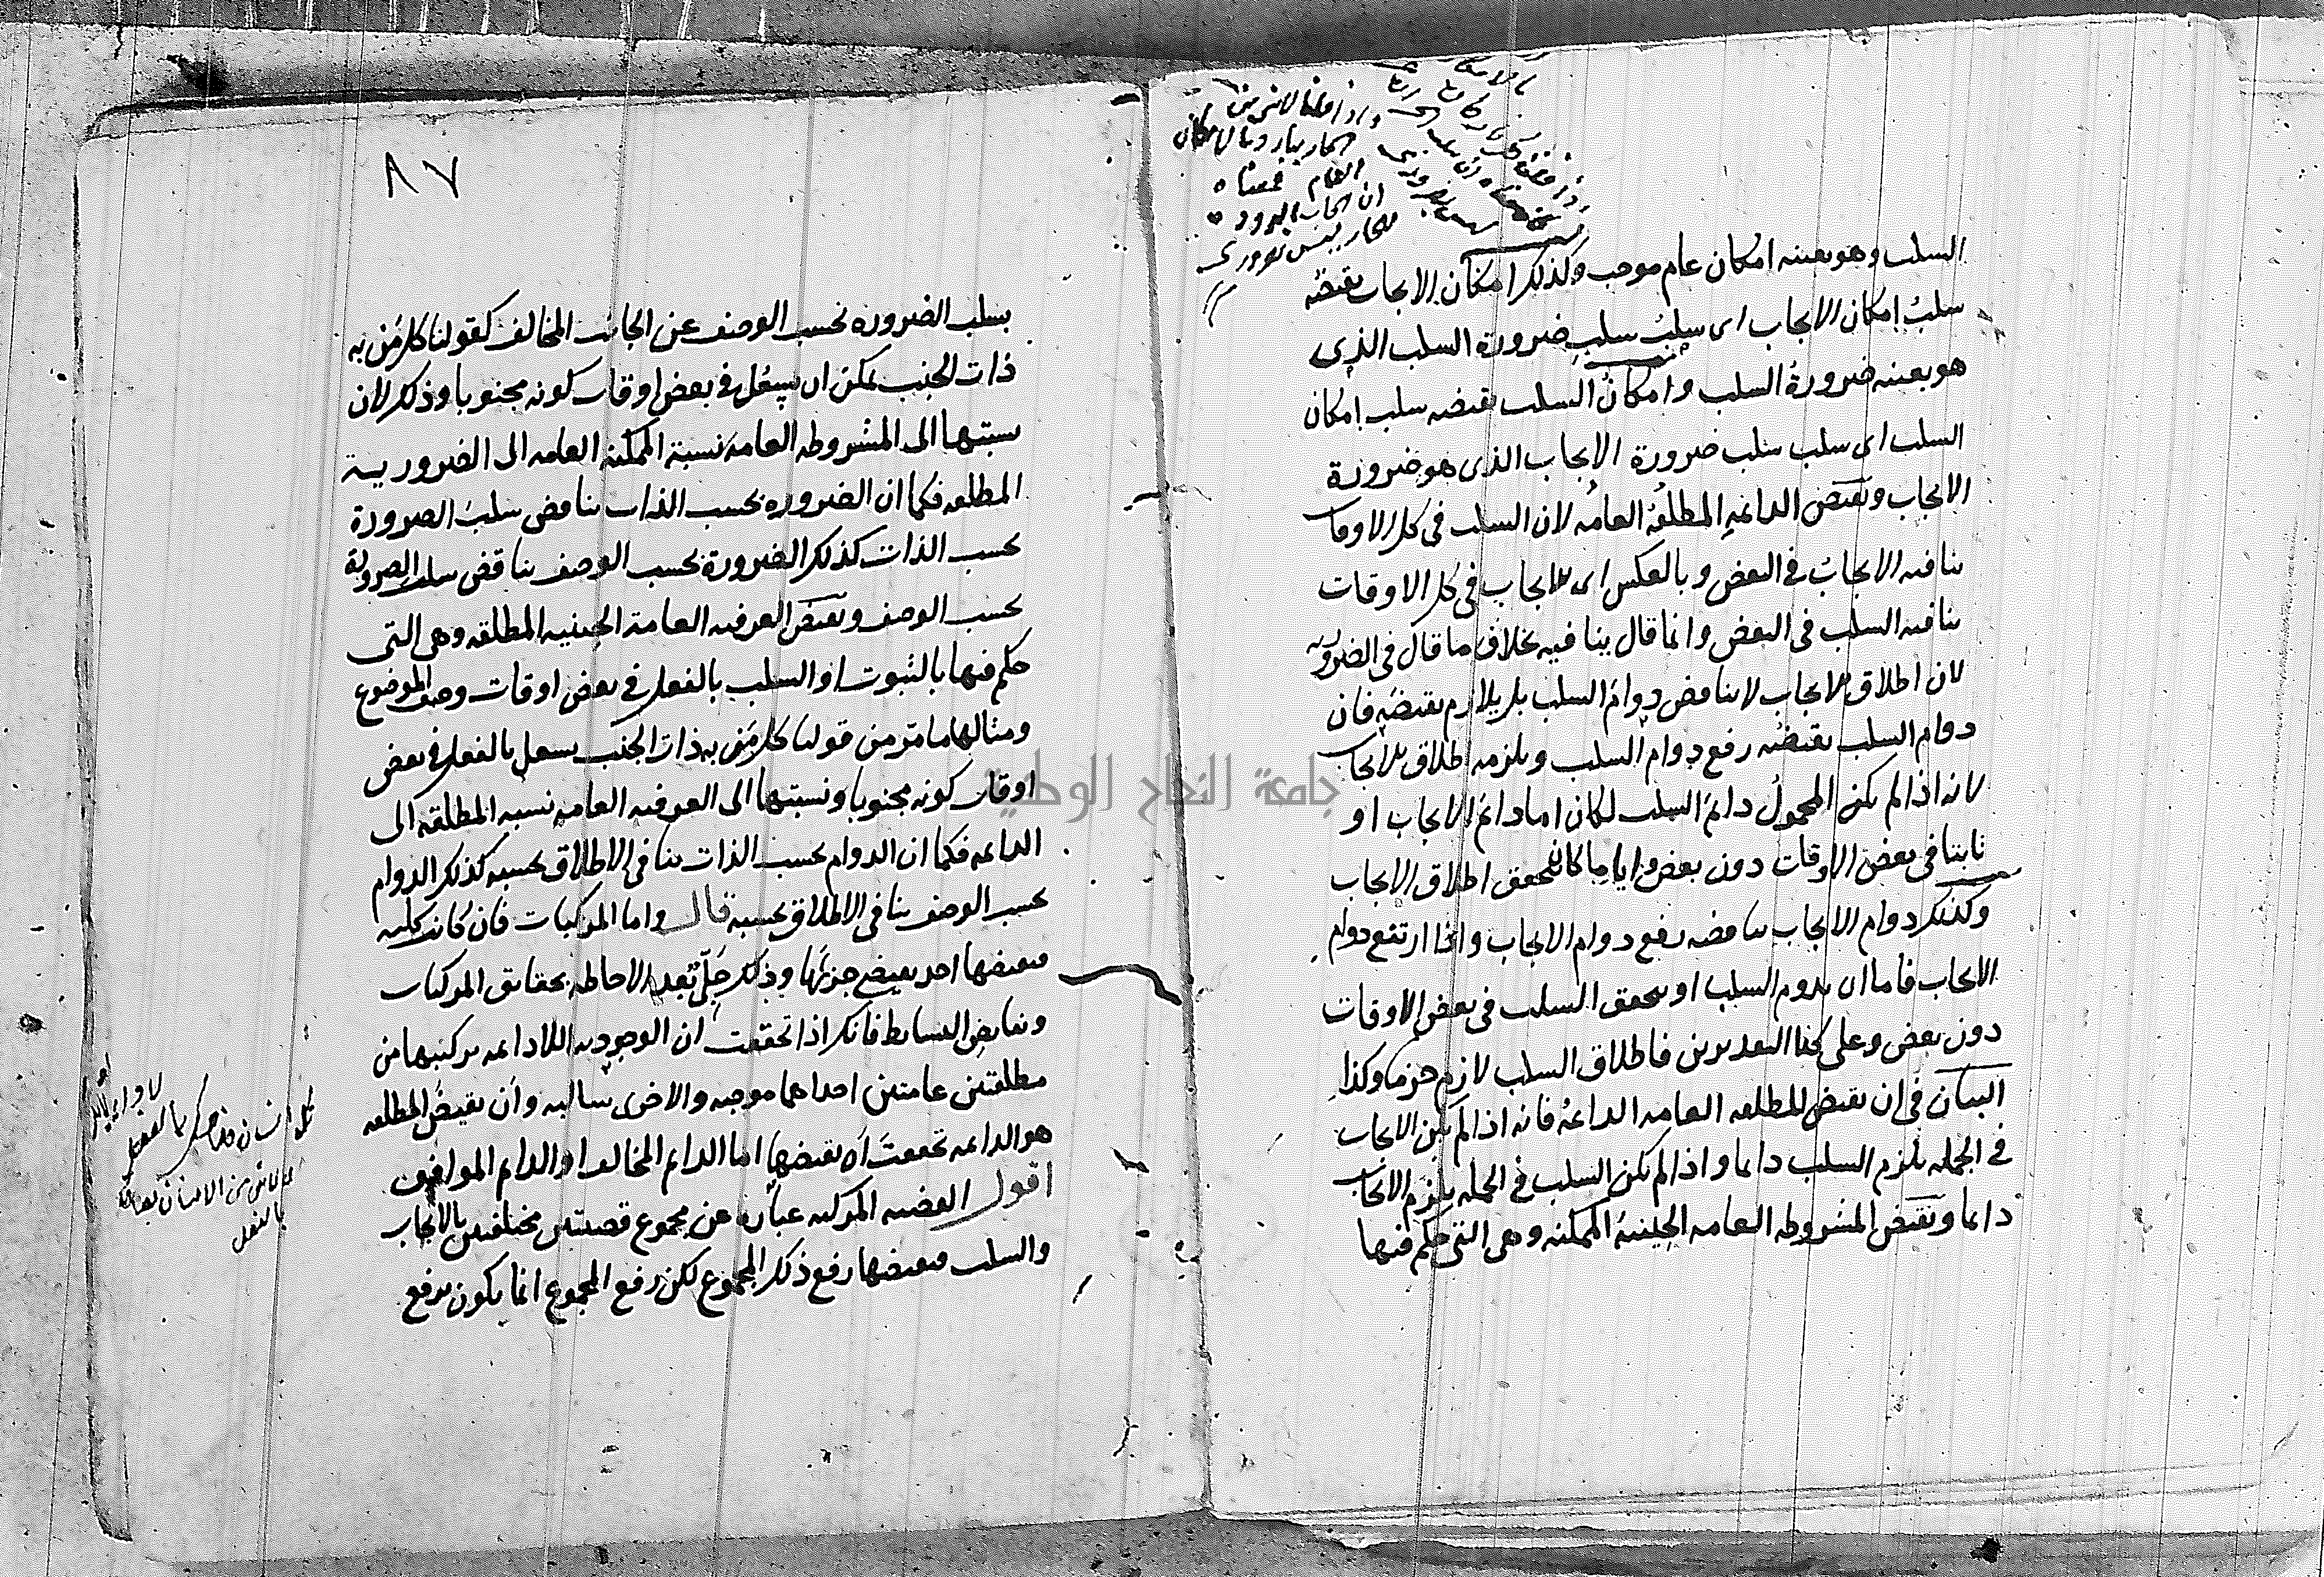 السلب وهو بعينه امكان عام موجب وكذلك امكان الايجاب نقيضه
سلب امكان الايجاب اى سلب سلب ضرورة السلب الذى
هو بعينه ضرورة السلب وامكان السلب نقيضه سلب امكان
السلب اى سلب سلب ضرورة الايجاب الذى هو ضرورة
الايجاب ونقيض الدائمة المطلقة العامه لان السلب فى كل الاوقات
ينافيه الايجاب فى البعض وبالعكس اى الايجاب فى كل الاوقات
ينافيه السلب فى البعض وانما قال ينافيه بخلاف ما قال فى الضرورية
لان اطلاق الايجاب لا يناقض دوام السلب بل يلازم نقيضه فان
دوام السلب نقيضه رفع دوام السلب ويلزمه اطلاق الايجاب
لانه اذا لم يكن المحمول دائم السلب لكان اما دائم الايجاب او
ثابتا فى بعض الاوقات دون بعض وايا ما كان يتحقق اطلاق الايجاب
وكذلك دوام الايجاب يناقضه رفع دوام الايجاب واذا ارتفع دوام
الايجاب فاما ان يدوم السلب او يتحقق السلب فى بعض الاوقات
دون بعض وعلى كلا التقديرين فاطلاق السلب لازم جزما وكذا
البيان فى ان نقيض المطلقه العامه الدائمة فانه اذا لم يكن الايجاب
فى الجمله يلزم السلب دائما واذا لم يكن السلب فى الجمله يلزم الايجاب
دائما ونقيض المشروطه العامه الحينية الممكنه وهى التى حكم فيها
واذا قلنا لا شئ من
الحار ببارد بالامكان
العام فمعناه
ان ايجاب البرودة
للحار ليس بضرورى
٨٧
بسلب الضروره بحسب الوصف عن الجانب المخالف كقولنا كل من به
ذات الجنب يمكن ان يسعل فى بعض اوقات كونه مجنوبا وذلك لان
نسبتها الى المشروطه العامة نسبة الممكنه العامه الى الضرورية
المطلقه فكما ان الضروره بحسب الذات يناقض سلب الضرورة
بحسب الذات كذلك الضرورة بحسب الوصف يناقض سلب الضرورة
بحسب الوصف ونقيض العرفيه العامة الحينيه المطلقه وهى التى
حكم فيها بالثبوت او السلب بالفعل فى بعض اوقات وصف الموضوع
ومثالها ما مر من قولنا كل من به ذات الجنب يسعل بالفعل فى بعض
اوقات كونه مجنوبا ونسبتها الى العرفيه العامه نسبة المطلقه الى
الدائمه فكما ان الدوام بحسب الذات ينافى الاطلاق بحسبه كذلك الدوام
بحسب الوصف ينافى الاطلاق بحسبه قال واما المركبات فان كانت كليه
فنقيضها احد نقيضى جزئيها وذلك جلى بعد الاحاطه بحقايق المركبات
ونقايض البسايط فانك اذا تحققت ان الوجوديه اللادائمه تركيبها من
مطلقتين عامتين احداهما موجبه والاخرى سالبه وان نقيض المطلقه
هو الدائمه تحققت ان نقيضها اما الدائم المخالف او الدائم الموافق
اقول القضيه المركبه عبارة عن مجموع قضيتين مختلفتين بالايجاب
والسلب فنقيضها رفع ذلك المجموع لكن رفع المجموع انما يكون برفع
كل انسان ضاحك بالفعل
لا دائما
لا شئ من الانسان بضاحك
بالفعل
جامعة النجاح الوطنية